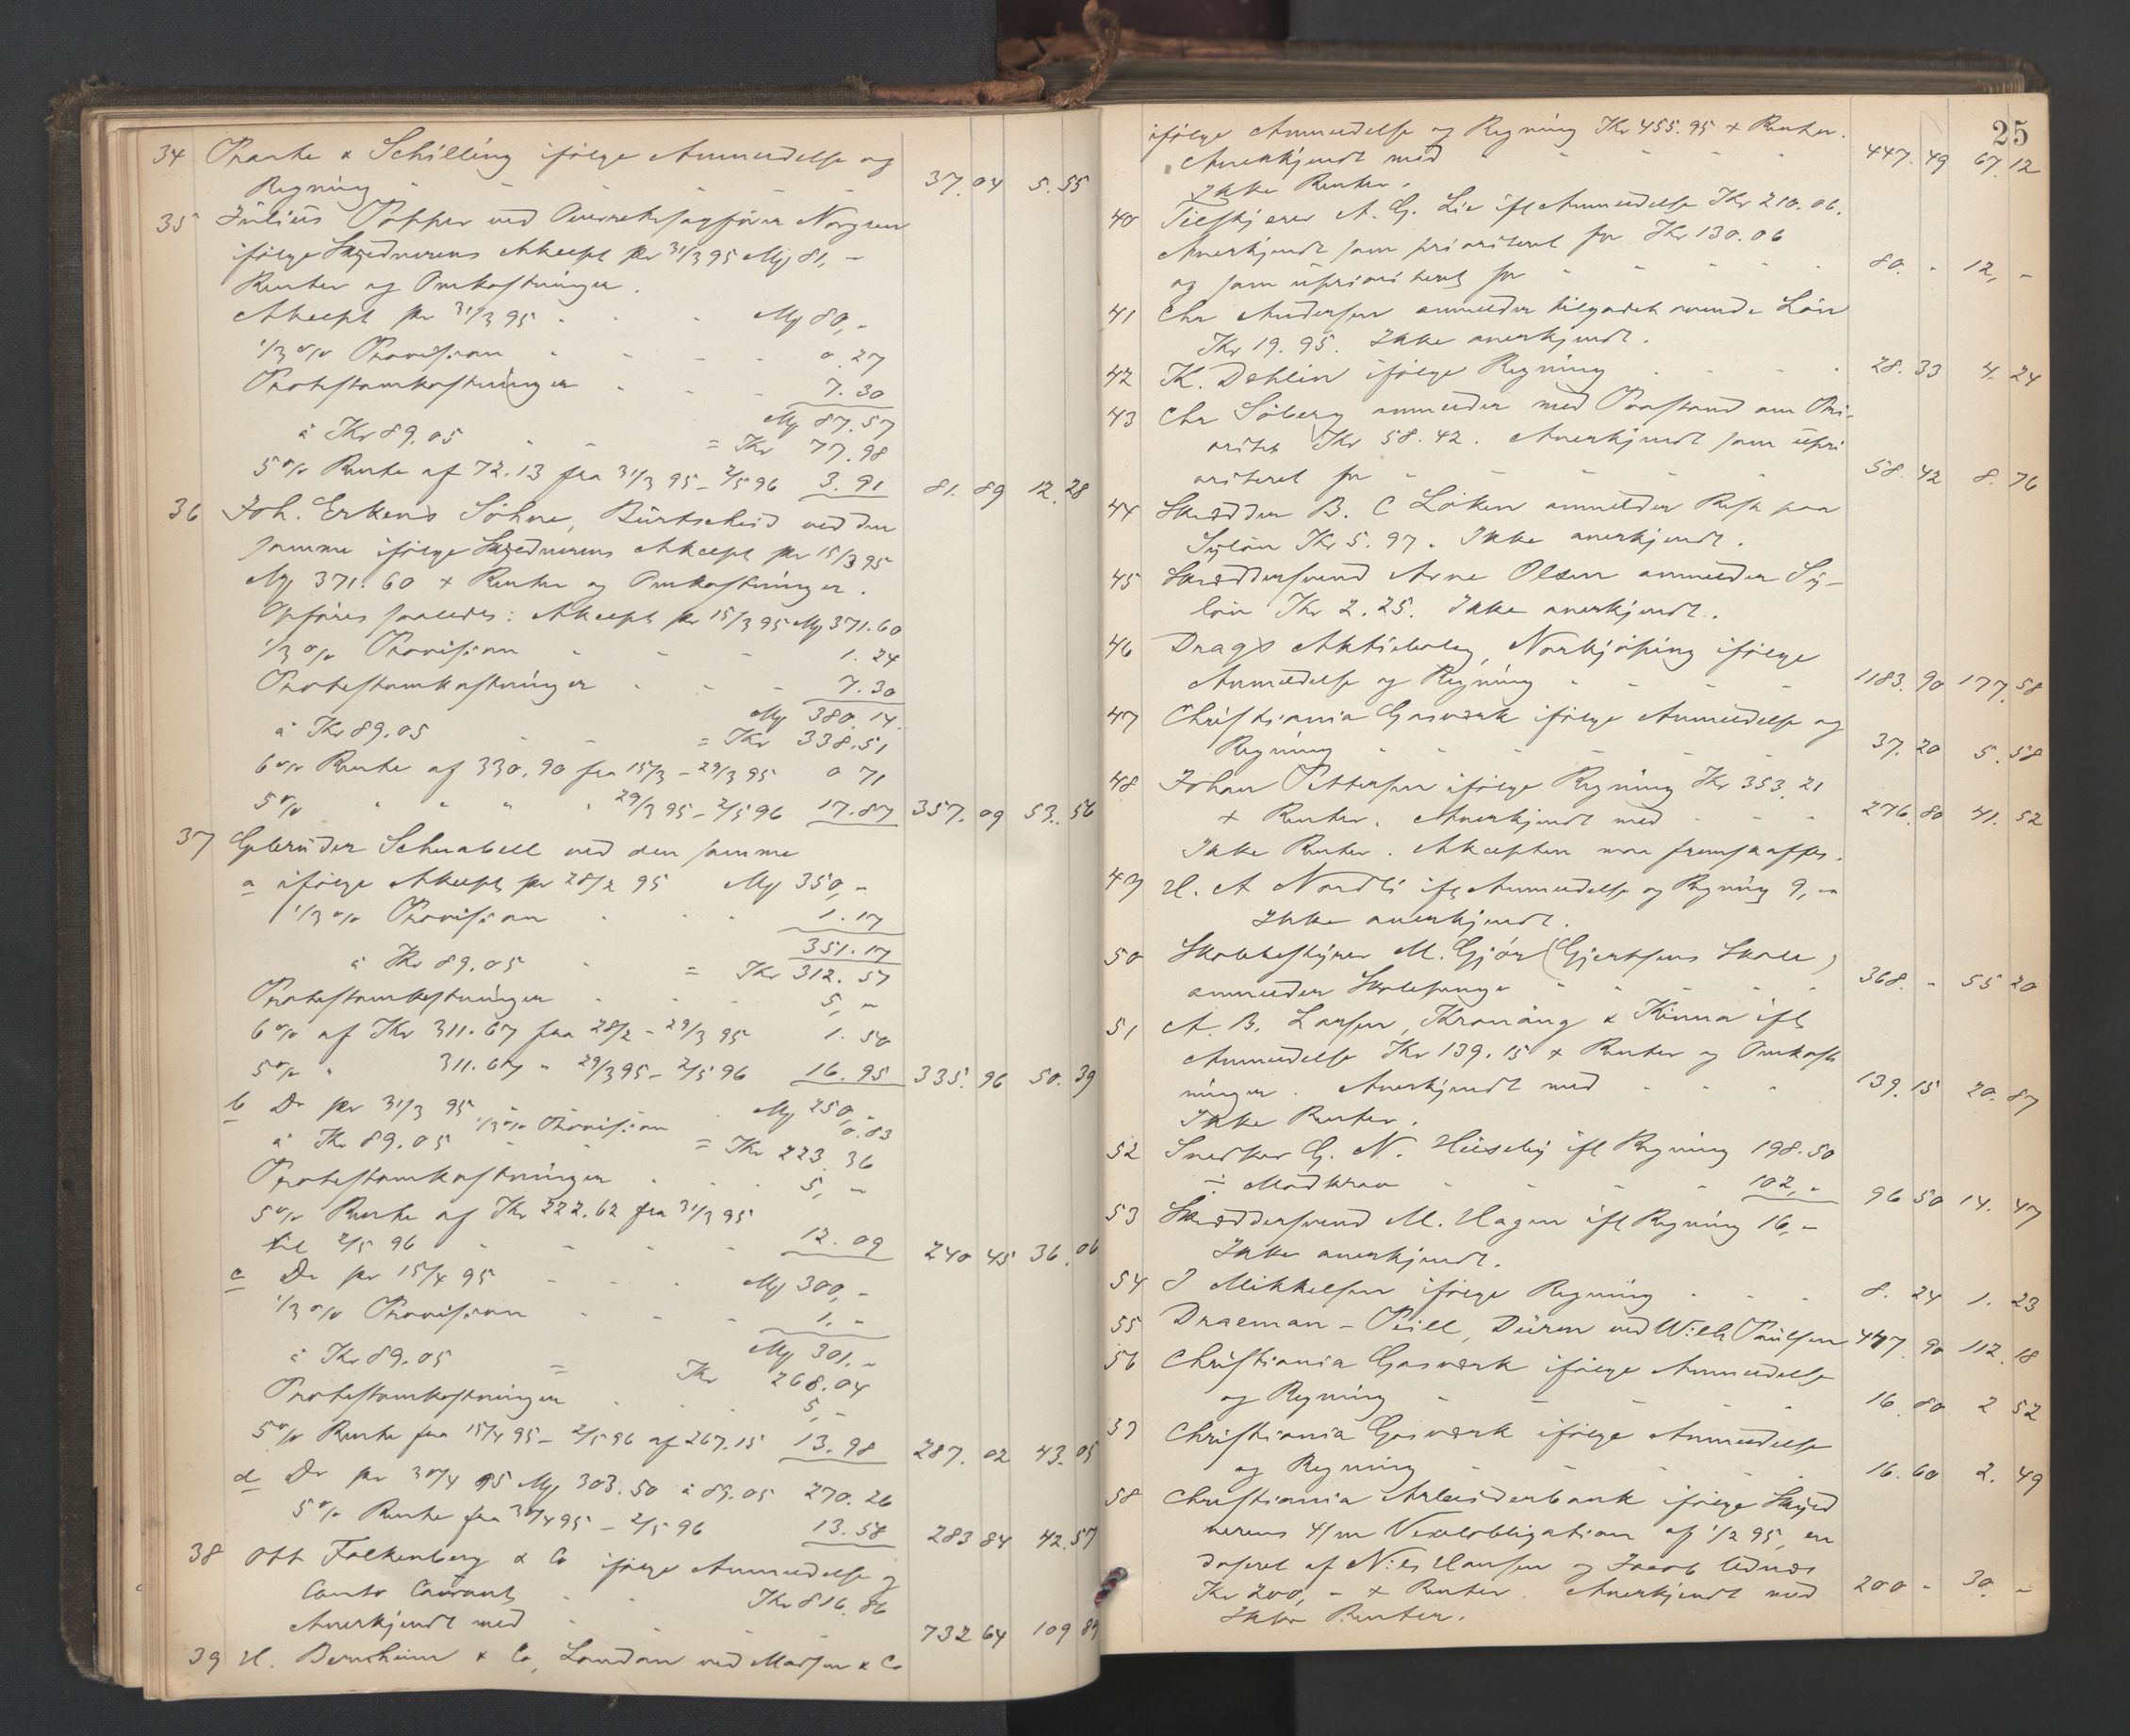 34 Prante & Schilling ifølge Anmeldelse og
Regning - - - - - 37.04 5.55
35 Julius Popper ved Overretssagfører Norgren
ifølge Skyldnerens Akcept pr 31/3 95 Mg 81,-
Renter og Omkostninger.
Akcept pr 31/3 95 - - Mg 80,-
1/3 % Provision - - - - 0.27
Protestomkostninger - - - 7.30
Mg 87.57
à Kr 89.05 - - = Kr 77.98
5 % Rente af 72.13 fra 31/3 95 - 2/5 96 3.91 81.89 12.28
36 Joh. Erkens Söhne, Burtscheid ved den
samme ifølge Skyldnerens Akcept pr 15/3 95
Mg 371.60 + Renter og Omkostninger.
Opføres saaledes: Akcept pr 15/3 95 Mg 371.60
1/3 % Provision - - - 1.24
Protestomkostninger - - - 7.30
Mg 380.14.
à Kr 89.05 - - = Kr 338.51
6 % Rente af 330.90 fra 15/3 - 29/3 95 0 71
5 % " " " " 29/3 95 - 2/5 96 17.87 357.09 53.56
37 Gebrüder Schnabell ved den samme
a ifølge Akcept pr 28/2 95 Mg 350,-
1/3 % Provision - - - 1.17
351.17
à Kr 89.05 - = Kr 312.57
Protestomkostninger - - - 5,-
6 % af Kr 311.67 fra 28/2 - 29/3 95 1.50
5 % " 311.67 " 29/3 95 - 2/5 96 16.95 335.96 50.39
b Do pr 31/3 95 - - Mg 250,-
1/3 % Provision 0.83
à Kr 89.05 - - = Kr 223.36
Protestomkostninger - - - 5,-
5 % Rente af Kr 222.62 fra 31/3 95
til 2/5 96 - - - - 12.09 240 45 36.06
c Do pr 15/4 95 - - - Mg 300,-
1/3 % Provision - - - 1.-
Mg 301,-
à Kr 89.05 = Kr 268.04
Protestomkostninger - - - 5,-
5 % Rente fra 15/4 95 - 2/5 96 af 267.15 13.98 287.02 43.05
d Do pr 30/4 95 Mg 303.50 à 89.05 270.26
5 % Rente fra 30/4 95 - 2/5 96 13.58 283 84 42.57
38 Ott Falkenberg & Co ifølge Anmeldelse og
Conto Courant - - Kr 816.86
Anerkjendt med - - - - 732 64 109 89
39 H. Bernheim & Co, London ved Madsen & Co
25
ifølge Anmeldelse og Regning Kr 455.95 + Renter.
Anerkjendt med - - - - 447.49 67.12
Ikke Renter.
40 Tilskjærer A. G. Lie ifl Anmeldelse Kr 210.06.
Anerkjendt som prioriteret for Kr 130.06
og som uprioriteret for - - - - 80. - 12,-
41 Chr Andersen anmelder tilgodehavende Løn
Kr 19.95. Ikke anerkjendt.
42 K. Dehlin ifølge Regning - - - - 28.33 4.24
43 Chr Soberg anmelder med Paastand om Pri-
oritet Kr 58.42. Anerkjendt som upri
oriteret for - - - - - 58.42 8.76
44 Skrædder B. C Løken anmelder Rest paa
Syløn Kr 5.97. Ikke anerkjendt.
45 Skræddersvend Arne Olsen anmelder Sy-
løn Kr 2.25. Ikke anerkjendt.
46 Drags Aktiebolag, Norkjøping ifølge
Anmeldelse og Regning - - - - 1183.90 177.58
47 Christiania Gasværk ifølge Anmeldelse og
Regning - - - - - 37.20 5.58
48 Johan Pettersen ifølge Regning Kr 353.21
+ Renter. Anerkjendt med - - - 276.80 41.52
Ikke Renter. Akcepten maa fremskaffes.
49 H. A Nordli ifl Anmeldelse og Regning 9,-
Ikke anerkjendt.
50 Skolebestyrer M. Gjør (Gjertsens Skole)
anmelder Skolepenge - - - - 368. - 55 20
51 A. B. Larsen, Kronäng & Kinna ifl
Anmeldelse Kr 139.15 + Renter og Omkost
ninger. Anerkjendt med - - - 139.15 20.87
Ikke Renter.
52 Snedker G. N. Huseby ifl Regning 198.50
÷ Modkrav - - - - 102,- 96 50 14.47
53 Skræddersvend M. Hagen ifl Regning 16,-
Ikke anerkjendt.
54 J Mikkelsen ifølge Regning - - - 8.24 1.23
55 Draeman-Peill, Düren ved Wilh Paulsen 747.90 112.18
56 Christiania Gasværk ifølge Anmeldelse
og Regning - - - - - 16.80 2 52
57 Christiania Gasværk ifølge Anmeldelse
og Regning - - - - - 16.60 2.49
58 Christiania Arbeiderbank ifølge Skyld
nerens 4/m Vexelobligation af 1/2 95, en
dosseret af Nils Hansen og Jacob
Kr 200,- + Renter. Anerkjendt med 200 - 30.-
Ikke Renter.